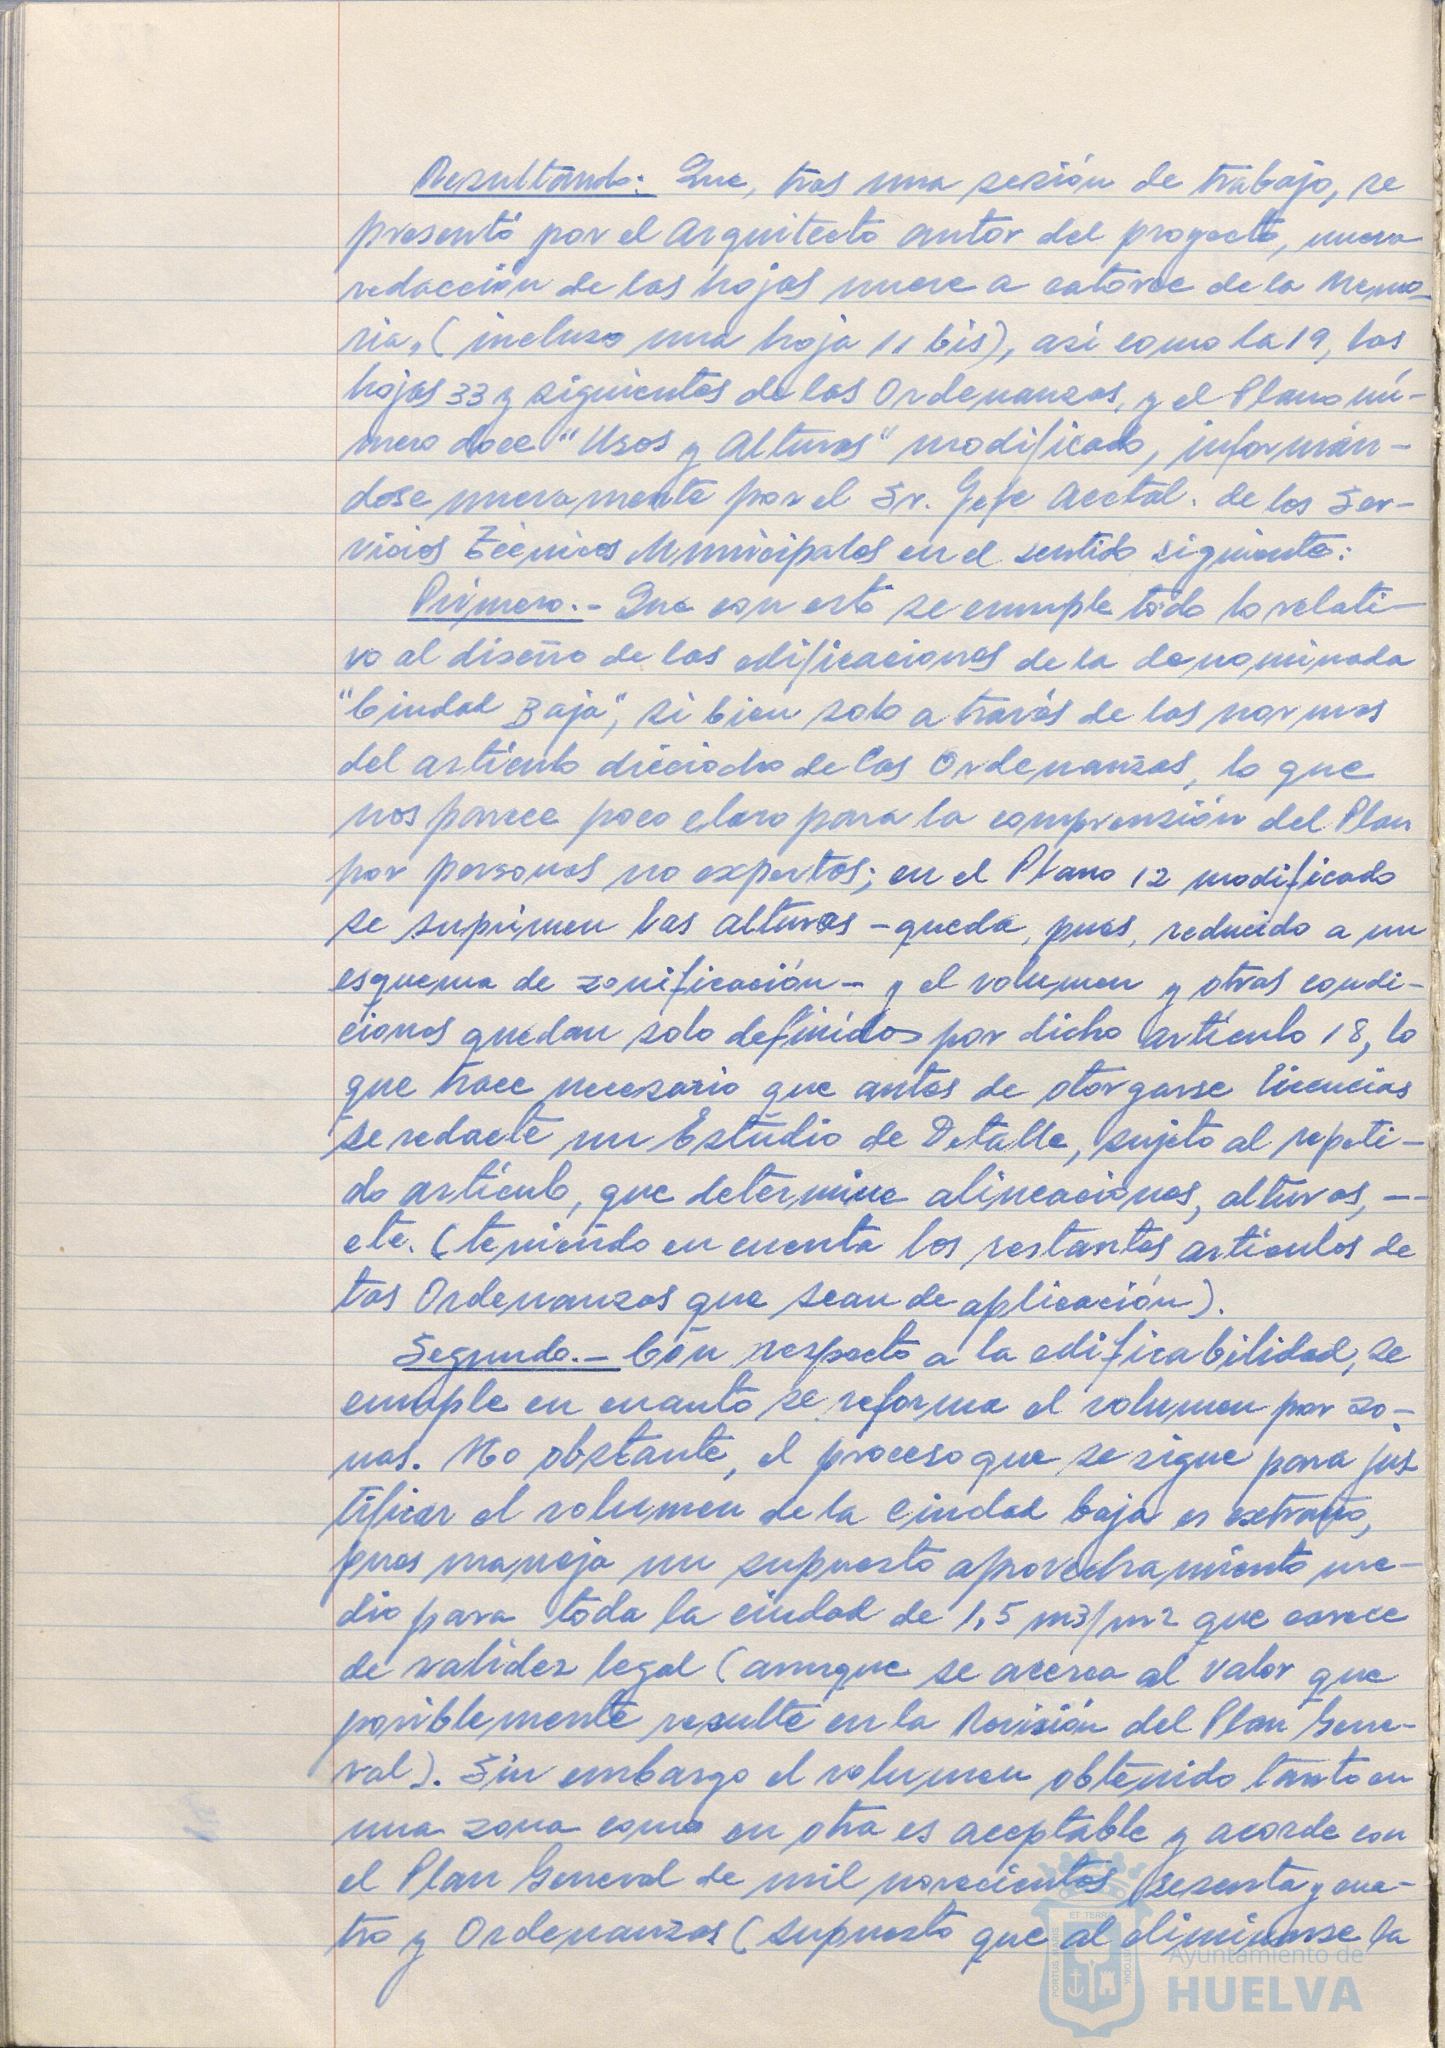 Resultando: Que, tras una sesión de trabajo, se
presentó por el Arquitecto autor del proyecto, nueva
redacción de las hojas nueve a catorce de la Memo-
ria, (incluso una hoja 11 bis), asi como la 19, las
hojas 33 y siguientes de las Ordenanzas, y el Plano nú-
mero doce "Usos y Alturas" modificado, informán-
dose nuevamente por el Sr. Jefe Acctal. de los Ser-
vicios Técnicos Municipales en el sentido siguiente:
Primero.- Que con esto se cumple todo lo relati-
vo al diseño de las edificaciones de la denominada
"Ciudad Baja", si bien solo a través de las normas
del artículo dieciocho de las Ordenanzas, lo que
nos parece poco claro para la comprensión del Plan
por personas no expertas; en el Plano 12 modificado
se suprimen las alturas - queda, pues, reducido a un
esquema de zonificación - y el volumen y otras condi-
ciones quedan solo definidos por dicho artículo 18, lo
que hace necesario que antes de otorgarse licencias
se redacte un Estudio de Detalle, sujeto al repeti-
do artículo, que determine alineaciones, alturas, --
etc. (teniendo en cuenta los restantes artículos de
las Ordenanzas que sean de aplicación).
Segundo.- Con respecto a la edificabilidad, se
cumple en cuanto se reforma el volumen por zo-
nas. No obstante, el proceso que se sigue para jus
tificar el volumen de la ciudad baja es extraño,
pues maneja un supuesto aprovechamiento me-
dio para toda la ciudad de 1,5 m3/m2 que carece
de validez legal (aunque se acerca al valor que
posiblemente resulte en la Revisión del Plan Gene-
ral). Sin embargo el volumen obtenido tanto en
una zona como en otra es aceptable y acorde con
el Plan General de mil novecientos sesenta y cua-
tro y Ordenanzas (supuesto que al eliminarse la
Ayuntamiento de
HUELVA